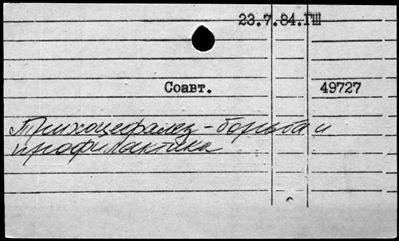 23.7.84.ГШ
Соавт. 49727
Трихоцефалез - борьба и
профилактика